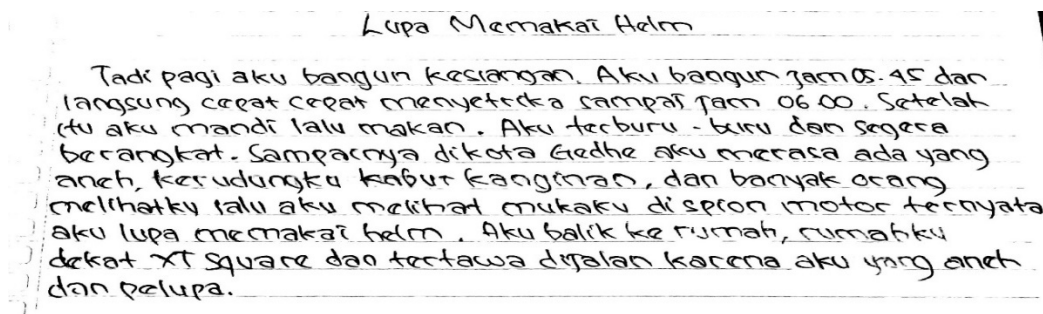 Lupa Memakai Helm
Tadi pagi aku bangun kesiangan. Aku bangun jam 05.45 dan
langsung cepat cepat menyetrika sampai jam 06.00. Setelah
itu aku mandi lalu makan. Aku terburu-buru dan segera
berangkat. Sampainya dikota Gedhe aku merasa ada yang
aneh, kerudungku kabur kanginan, dan banyak orang
melihatku lalu aku melihat mukaku di spion motor ternyata
aku lupa memakai helm. Aku balik ke rumah, rumahku
dekat XT Square dan tertawa dijalan karena aku yang aneh
dan pelupa.